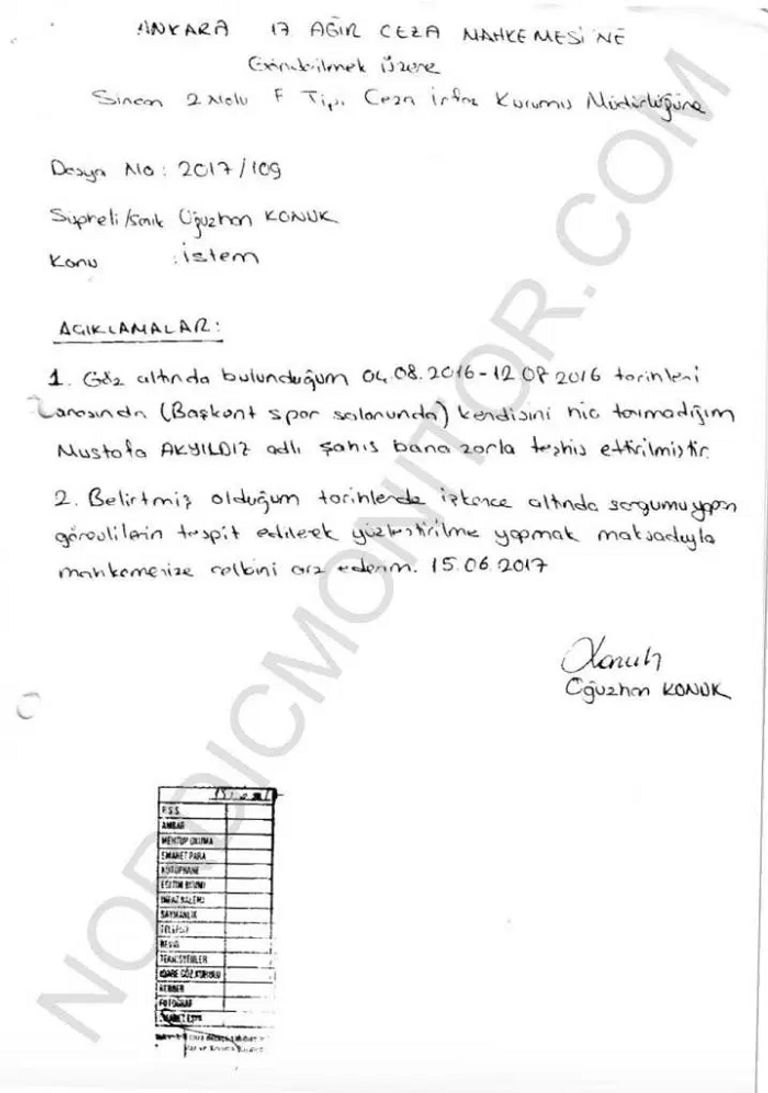 ANKARA 17 AĞIR CEZA MAHKEMESİ'NE
Gönderilmek Üzere
Sincan 2 Nolu F Tipi Ceza İnfaz Kurumu Müdürlüğüne
Dosya No: 2017/109
Şüpheli/Sanık Oğuzhan KONUK
Konu : İstem
AÇIKLAMALAR:
1. Göz altında bulunduğum 04.08.2016-12.08.2016 tarihleri
arasında (Başkent spor salonunda) kendisini hiç tanımadığım
Mustafa AKYILDIZ adlı şahıs bana zorla teşhis ettirilmiştir.
2. Belirtmiş olduğum tarihlerde işkence altında sorgumu yapan
görevlilerin tespit edilerek yüzleştirilme yapmak maksadıyla
mahkemenize celbini arz ederim. 15.06.2017
Oğuzhan KONUK
P.S.S.
AMBAR
MEKTUP OKUMA
EMANET PARA
KÜTÜPHANE
EĞİTİM BİRİMİ
İNFAZ KALEMİ
SAYMANLIK
TELEFON
REVİR
TEKNİSYENLER
İDARE GÖZ.KURULU
BERBER
FOTOĞRAF
NORDICMONITOR.COM